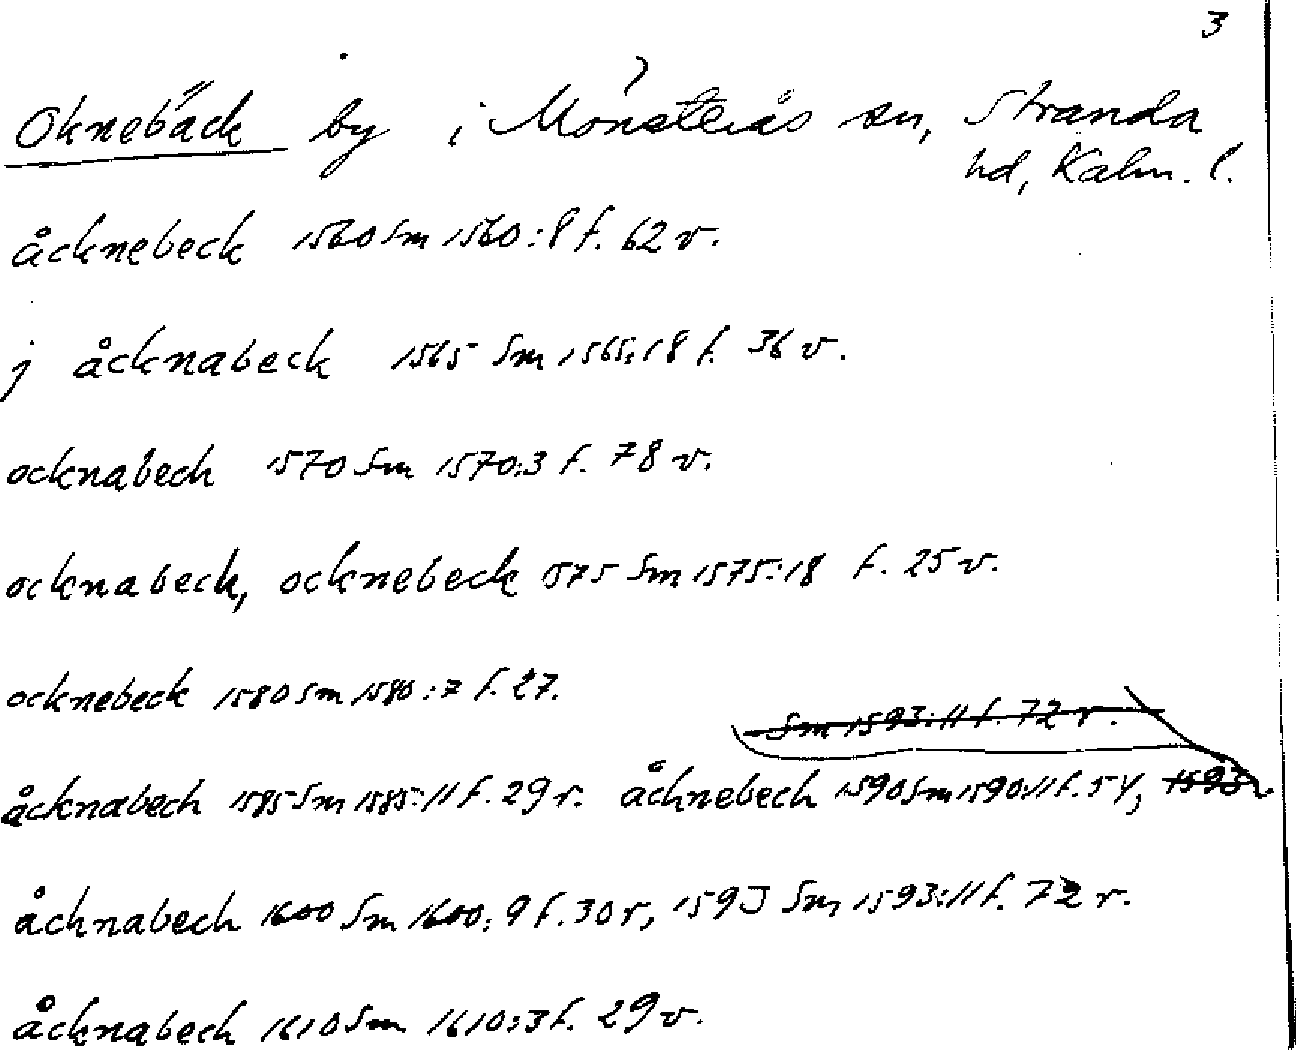 3
Oknebäck by i Mönsterås sn, Stranda
hd, Kalm. l.
åcknebeck 1560 Sm 1560:8 f. 62 v.
j åcknabeck 1565 Sm 1565:18 f. 36 v.
ocknabech 1570 Sm 1570:3 f. 78 v.
ocknabeck, ocknebeck 1575 Sm 1575:18 f. 25 v.
ocknebeck 1580 Sm 1580:7 f. 27.
Sm 1593:11 f. 72 r.
åcknabech 1585 Sm 1585:11 f. 29 r. åchnebech 1590 Sm 1590:11 f. 54, 1593
åchnabech 1600 Sm 1600:9 f. 30 r, 1593 Sm 1593:11 f. 72 r.
åcknabech 1610 Sm 1610:3 f. 29 v.